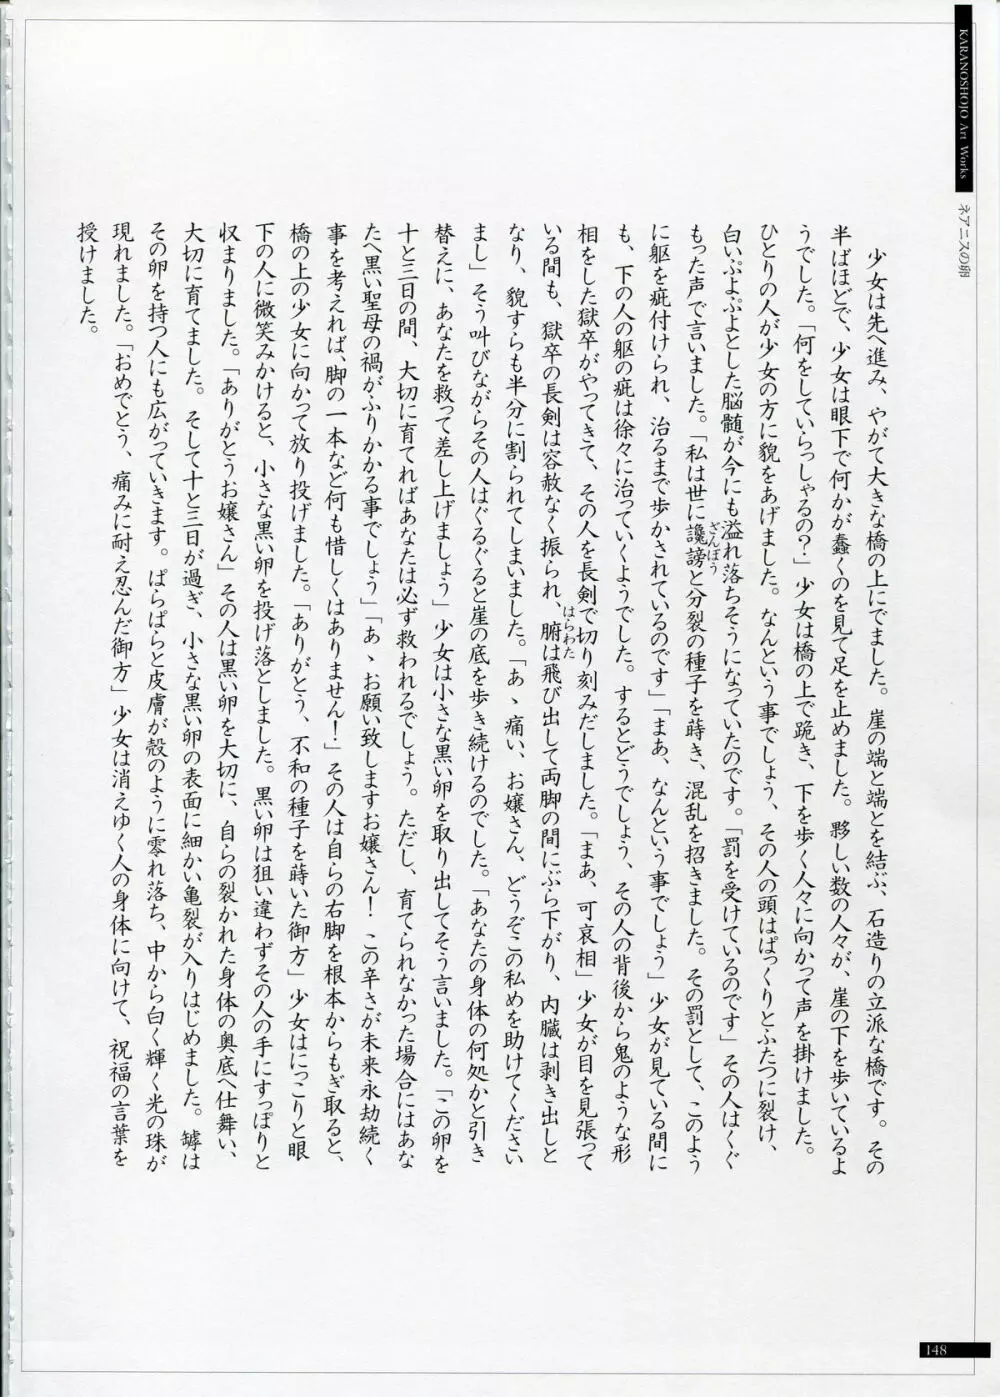 KARANOSHOJO Art Works
ネアニスの卵
少女は先へ進み、やがて大きな橋の上にでました。崖の端と端とを結ぶ、石造りの立派な橋です。その
半ばほどで、少女は眼下で何かが蠢くのを見て足を止めました。夥しい数の人々が、崖の下を歩いているよ
うでした。「何をしていらっしゃるの？」少女は橋の上で跪き、下を歩く人々に向かって声を掛けました。
ひとりの人が少女の方に貌をあげました。なんという事でしょう、その人の頭はぱっくりとふたつに裂け、
白いぷよぷよとした脳髄が今にも溢れ落ちそうになっていたのです。「罰を受けているのです」その人はくぐ
もった声で言いました。「私は世に讒謗と分裂の種子を蒔き、混乱を招きました。その罰として、このよう
ざんぼう
に躯を疵付けられ、治るまで歩かされているのです」「まあ、なんという事でしょう」少女が見ている間に
も、下の人の躯の疵は徐々に治っていくようでした。するとどうでしょう、その人の背後から鬼のような形
相をした獄卒がやってきて、その人を長剣で切り刻みだしました。「まあ、可哀相」少女が目を見張って
いる間も、獄卒の長剣は容赦なく振られ、腑は飛び出して両脚の間にぶら下がり、内臓は剥き出しと
はらわた
なり、貌すらも半分に割られてしまいました。「あゝ痛い、お嬢さん、どうぞこの私めを助けてください
まし」そう叫びながらその人はぐるぐると崖の底を歩き続けるのでした。「あなたの身体の何処かと引き
替えに、あなたを救って差し上げましょう」少女は小さな黒い卵を取り出してそう言いました。「この卵を
十と三日の間、大切に育てればあなたは必ず救われるでしょう。ただし、育てられなかった場合にはあな
たへ黒い聖母の禍がふりかかる事でしょう」「あゝお願い致しますお嬢さん！この辛さが未来永劫続く
事を考えれば、脚の一本など何も惜しくはありません！」その人は自らの右脚を根本からもぎ取ると、
橋の上の少女に向かって放り投げました。「ありがとう、不和の種子を蒔いた御方」少女はにっこりと眼
下の人に微笑みかけると、小さな黒い卵を投げ落としました。黒い卵は狙い違わずその人の手にすっぽりと
収まりました。「ありがとうお嬢さん」その人は黒い卵を大切に、自らの裂かれた身体の奥底へ仕舞い、
大切に育てました。そして十と三日が過ぎ、小さな黒い卵の表面に細かい亀裂が入りはじめました。罅は
その卵を持つ人にも広がっていきます。ぱらぱらと皮膚が殻のように零れ落ち、中から白く輝く光の珠が
現れました。「おめでとう、痛みに耐え忍んだ御方」少女は消えゆく人の身体に向けて、祝福の言葉を
授けました。
148